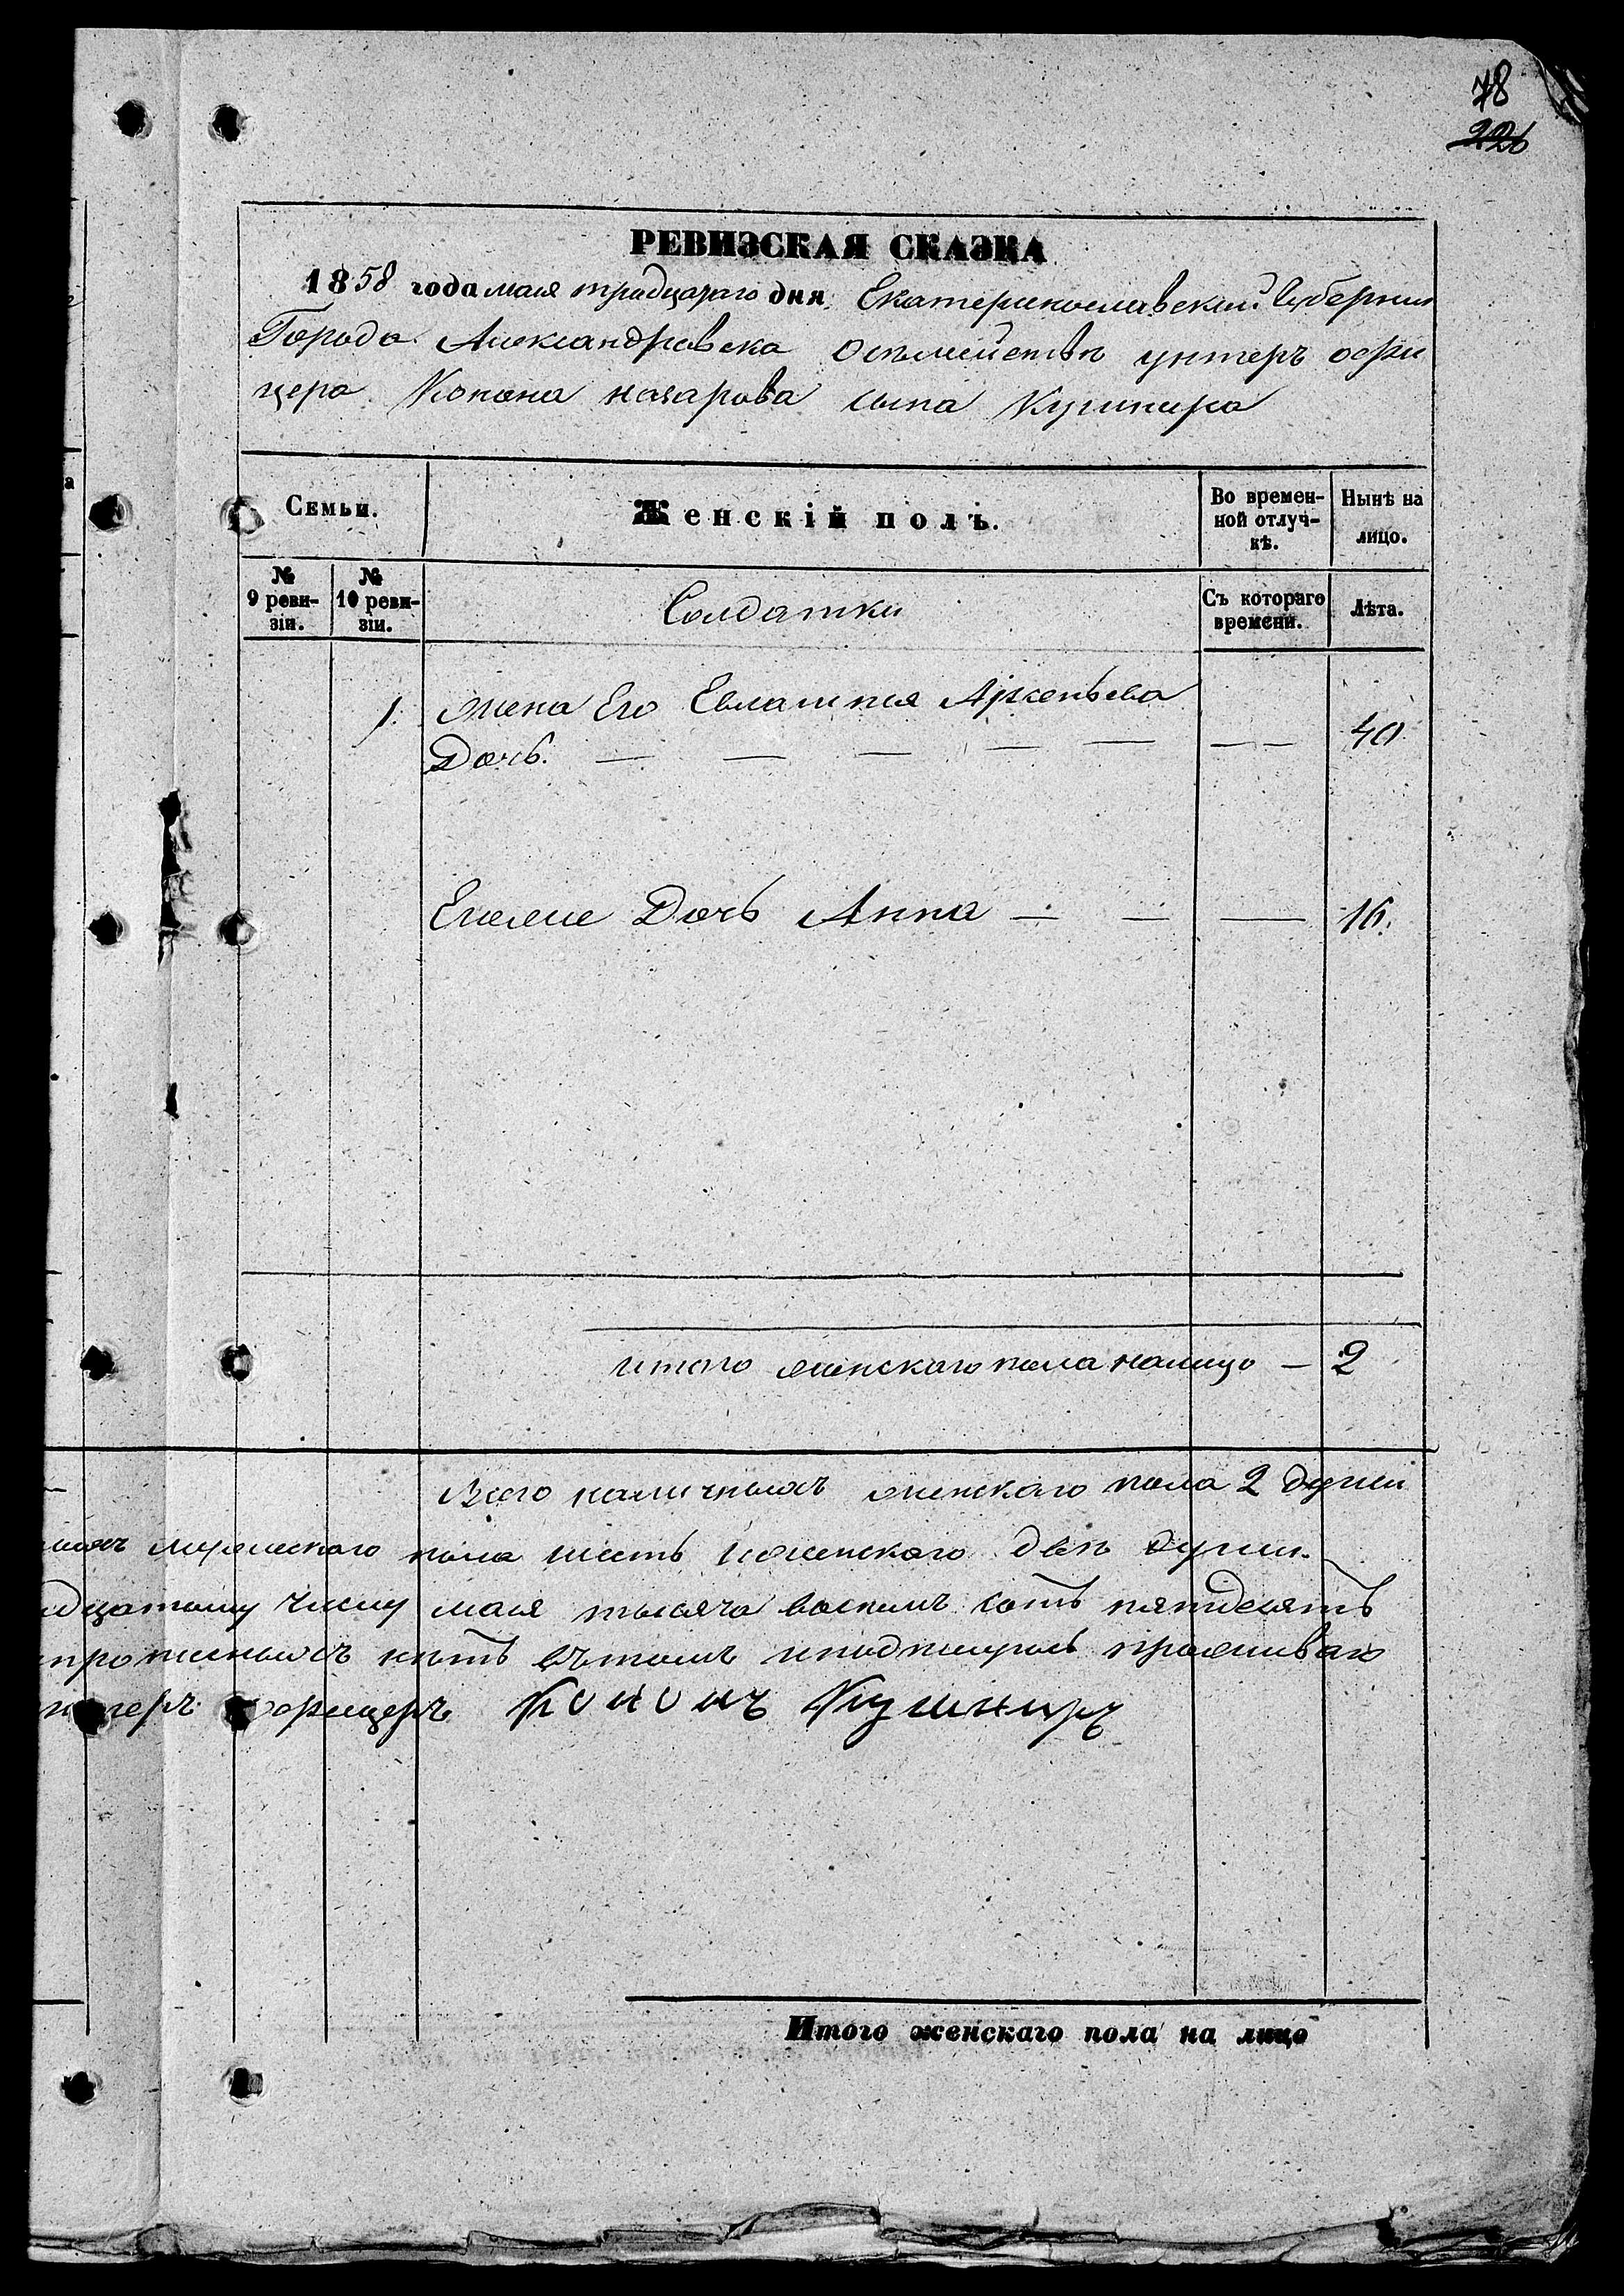 78
226
РЕВИЗСКАЯ СКАЗКА
1858 года мая тридцатаго дня Екатеринославской Губернии
Города Александровска Осемействѣ унтеръ офи
цера Конона назарова сына Кушнира
Семьи.
Женскій полъ.
Во времен-
ной отлуч-
кѣ.
Нынѣ на
лицо.
№
9 реви-
зіи.
№
10 реви-
зіи.
Солдатки
Съ котораго
времени.
Лѣта.
1. жена Его Евлампия Арсеньева
Дочь. — — — — — — — 40
Ихже Дочь Анна — — — 16.
итого женскаго пола налицо — 2
Всего наличныхъ женскаго пола 2 души
мужескаго пола шесть иженскаго двѣ души.
дцатому числу мая тысяча восемъ сотъ пятдесятъ
нѣтъ вътомъ
офицеръ Кононъ Кушниръ
Итого женскаго пола на лицо